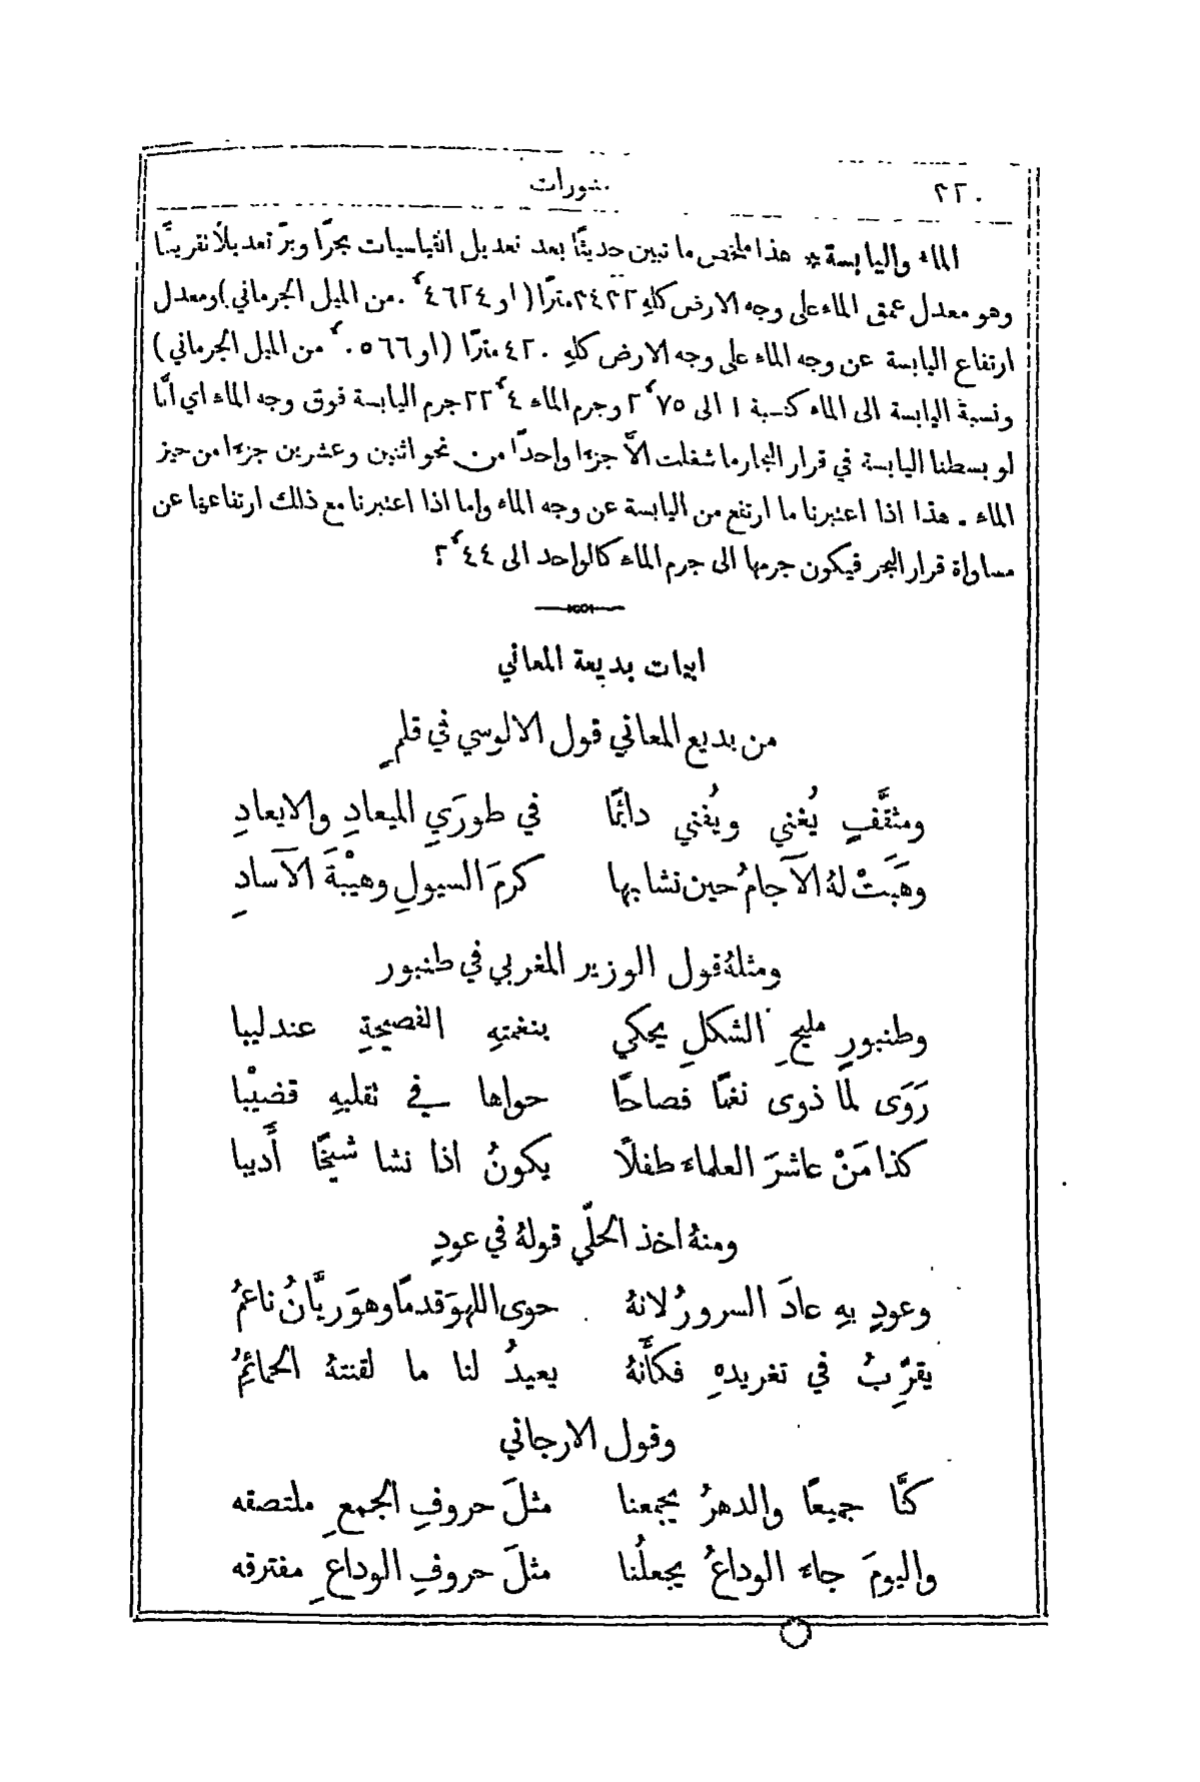 ٢٢٠ منثورات
الماء واليابسة * هذا ملخص ما تبين حديثًا بعد تعديل القياسيات بحرًا وبرّ تعديلاً تقريبيًّا
وهو معدل عمق الماء على وجه الارض كلهِ ٣٤٣٢ مترًا (او ٤٦٢٤،٠ من الميل الجرماني) ومعدل
ارتفاع اليابسة عن وجه الماء على وجه الارض كلهِ ٤٢٠ مترًا (او ٠،٠٥٦٦ من الميل الجرماني)
ونسبة اليابسة الى الماء كنسبة ١ الى ٢،٧٥ وجرم الماء ٢٢،٤ جرم اليابسة فوق وجه الماء اي انَّا
لو بسطنا اليابسة في قرار البحار ما شغلت الاَّ جزءًا واحدًا من نحو اثنين وعشرين جزءًا من حيز
الماء . هذا اذا اعتبرنا ما ارتفع من اليابسة عن وجه الماء واما اذا اعتبرنا مع ذلك ارتفاعها عن
مساواة قرار البحر فيكون جرمها الى جرم الماء كالواحد الى ٢،٤٤
ابيات بديعة المعاني
من بديع المعاني قول الالوسي في قلمٍ
ومثقَّفٍ يُغني ويُفني دائمًا في طورَيِ الميعادِ والايعادِ
وهَبَتْ لهُ الآجامُ حين نشا بها كرمَ السيولِ وهيْبةَ الآسادِ
ومثلهُ قول الوزير المغربي في طنبور
وطنبورٍ مليحِ الشكلِ يحكي بنغمتهِ الفصيحةِ عندليبا
رَوَى لمَّا ذوى نغمًا فصاحًا حواها في تقلبهِ قضيْبا
كذا مَنْ عاشرَ العلماء طفلًا يكونُ اذا نشا شيخًا أَديبا
ومنهُ اخذ الحلّي قولهُ في عودٍ
وعودٍ بهِ عادَ السرورُ لانهُ حوى اللهوَ قدمًا وهوَ ريَّانُ ناعمُ
يقرِّبُ في تغريدهِ فكأَنهُ يعيدُ لنا ما لقنتهُ الحمائمُ
وقول الارجاني
كنَّا جميعًا والدهرُ يجمعنا مثلَ حروفِ الجمعِ ملتصقه
واليومَ جاء الوداعُ يجعلُنا مثلَ حروفِ الوداعِ مفترقه